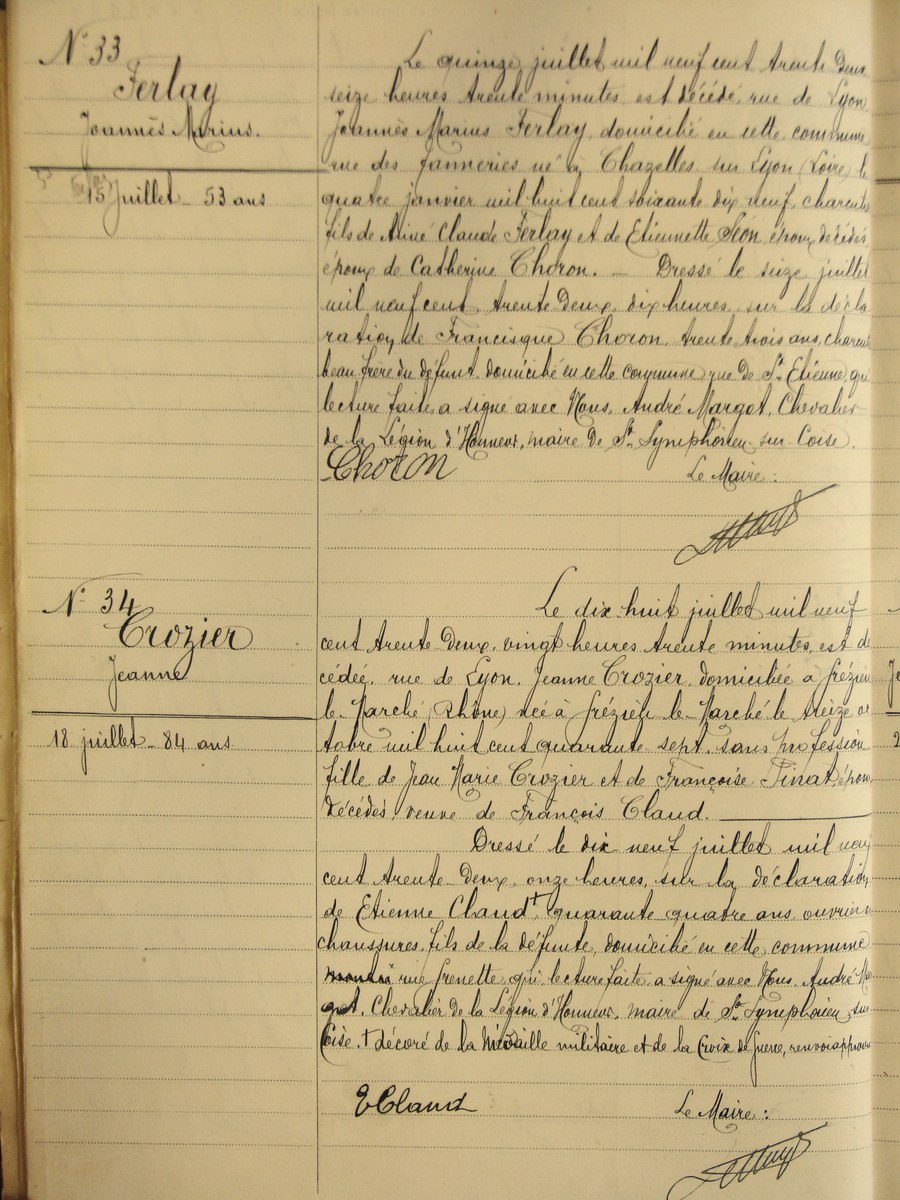 N° 33
Ferlay
Joannès Marius.
15 Juillet - 53 ans
Le quinze juillet mil neuf cent trente deux
seize heures trente minutes, est décédé, rue de Lyon
Joannès Marius Ferlay, domicilié en cette commune
rue des Tanneries né à Chazelles sur Lyon (Loire) le
quatre janvier mil huit cent soixante dix neuf,
fils de Aimé Claude Ferlay et de Etiennette Séon époux décédés,
époux de Catherine Choron. — Dressé le seize juillet
mil neuf cent trente deux, dix heures, sur la décla
ration de Francisque Choron, trente trois ans,
beau frère du défunt domicilié en cette commune, rue de St Etienne, qui
lecture faite a signé avec Nous, André Margot, Chevalier
de la Légion d'Honneur, maire de St Symphorien-sur-Coise.
Choron
Le Maire :
N° 34
Crozier
Jeanne
18 juillet - 84 ans
Le dix huit juillet mil neuf
cent trente deux, vingt heures trente minutes, est dé
cédée, rue de Lyon, Jeanne Crozier, domiciliée à Grézieu
le Marché (Rhône) née à Grézieu le Marché le treize oc
tobre mil huit cent quarante sept, sans profession
fille de Jean Marie Crozier et de Françoise Pinat, époux
décédés, veuve de François Claud.
Dressé le dix neuf juillet mil neuf
cent trente deux, onze heures, sur la déclaration
de Etienne Claud †, quarante quatre ans, ouvrier en
chaussures, fils de la défunte, domicilié en cette commune
rue Grenette qui lecture faite a signé avec Nous, André Mar
got, Chevalier de la Légion d'Honneur, maire de St Symphorien sur
Coise. † décoré de la Médaille militaire et de la Croix de Guerre, renvoi approuvé
E Claud
Le Maire :